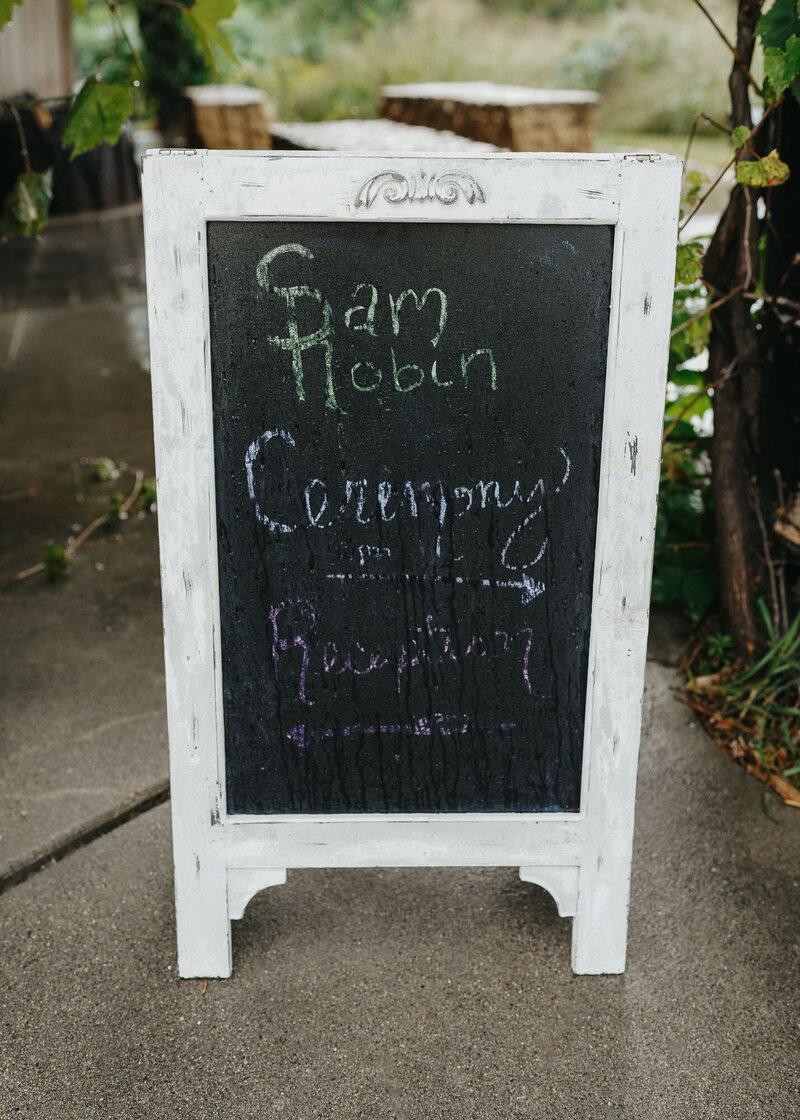 Sam
Robin
Ceremony
pm
Reception